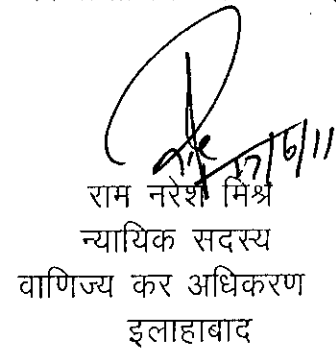 17/6/11
राम नरेश मिश्र
न्यायिक सदस्य
वाणिज्य कर अधिकरण
इलाहाबाद